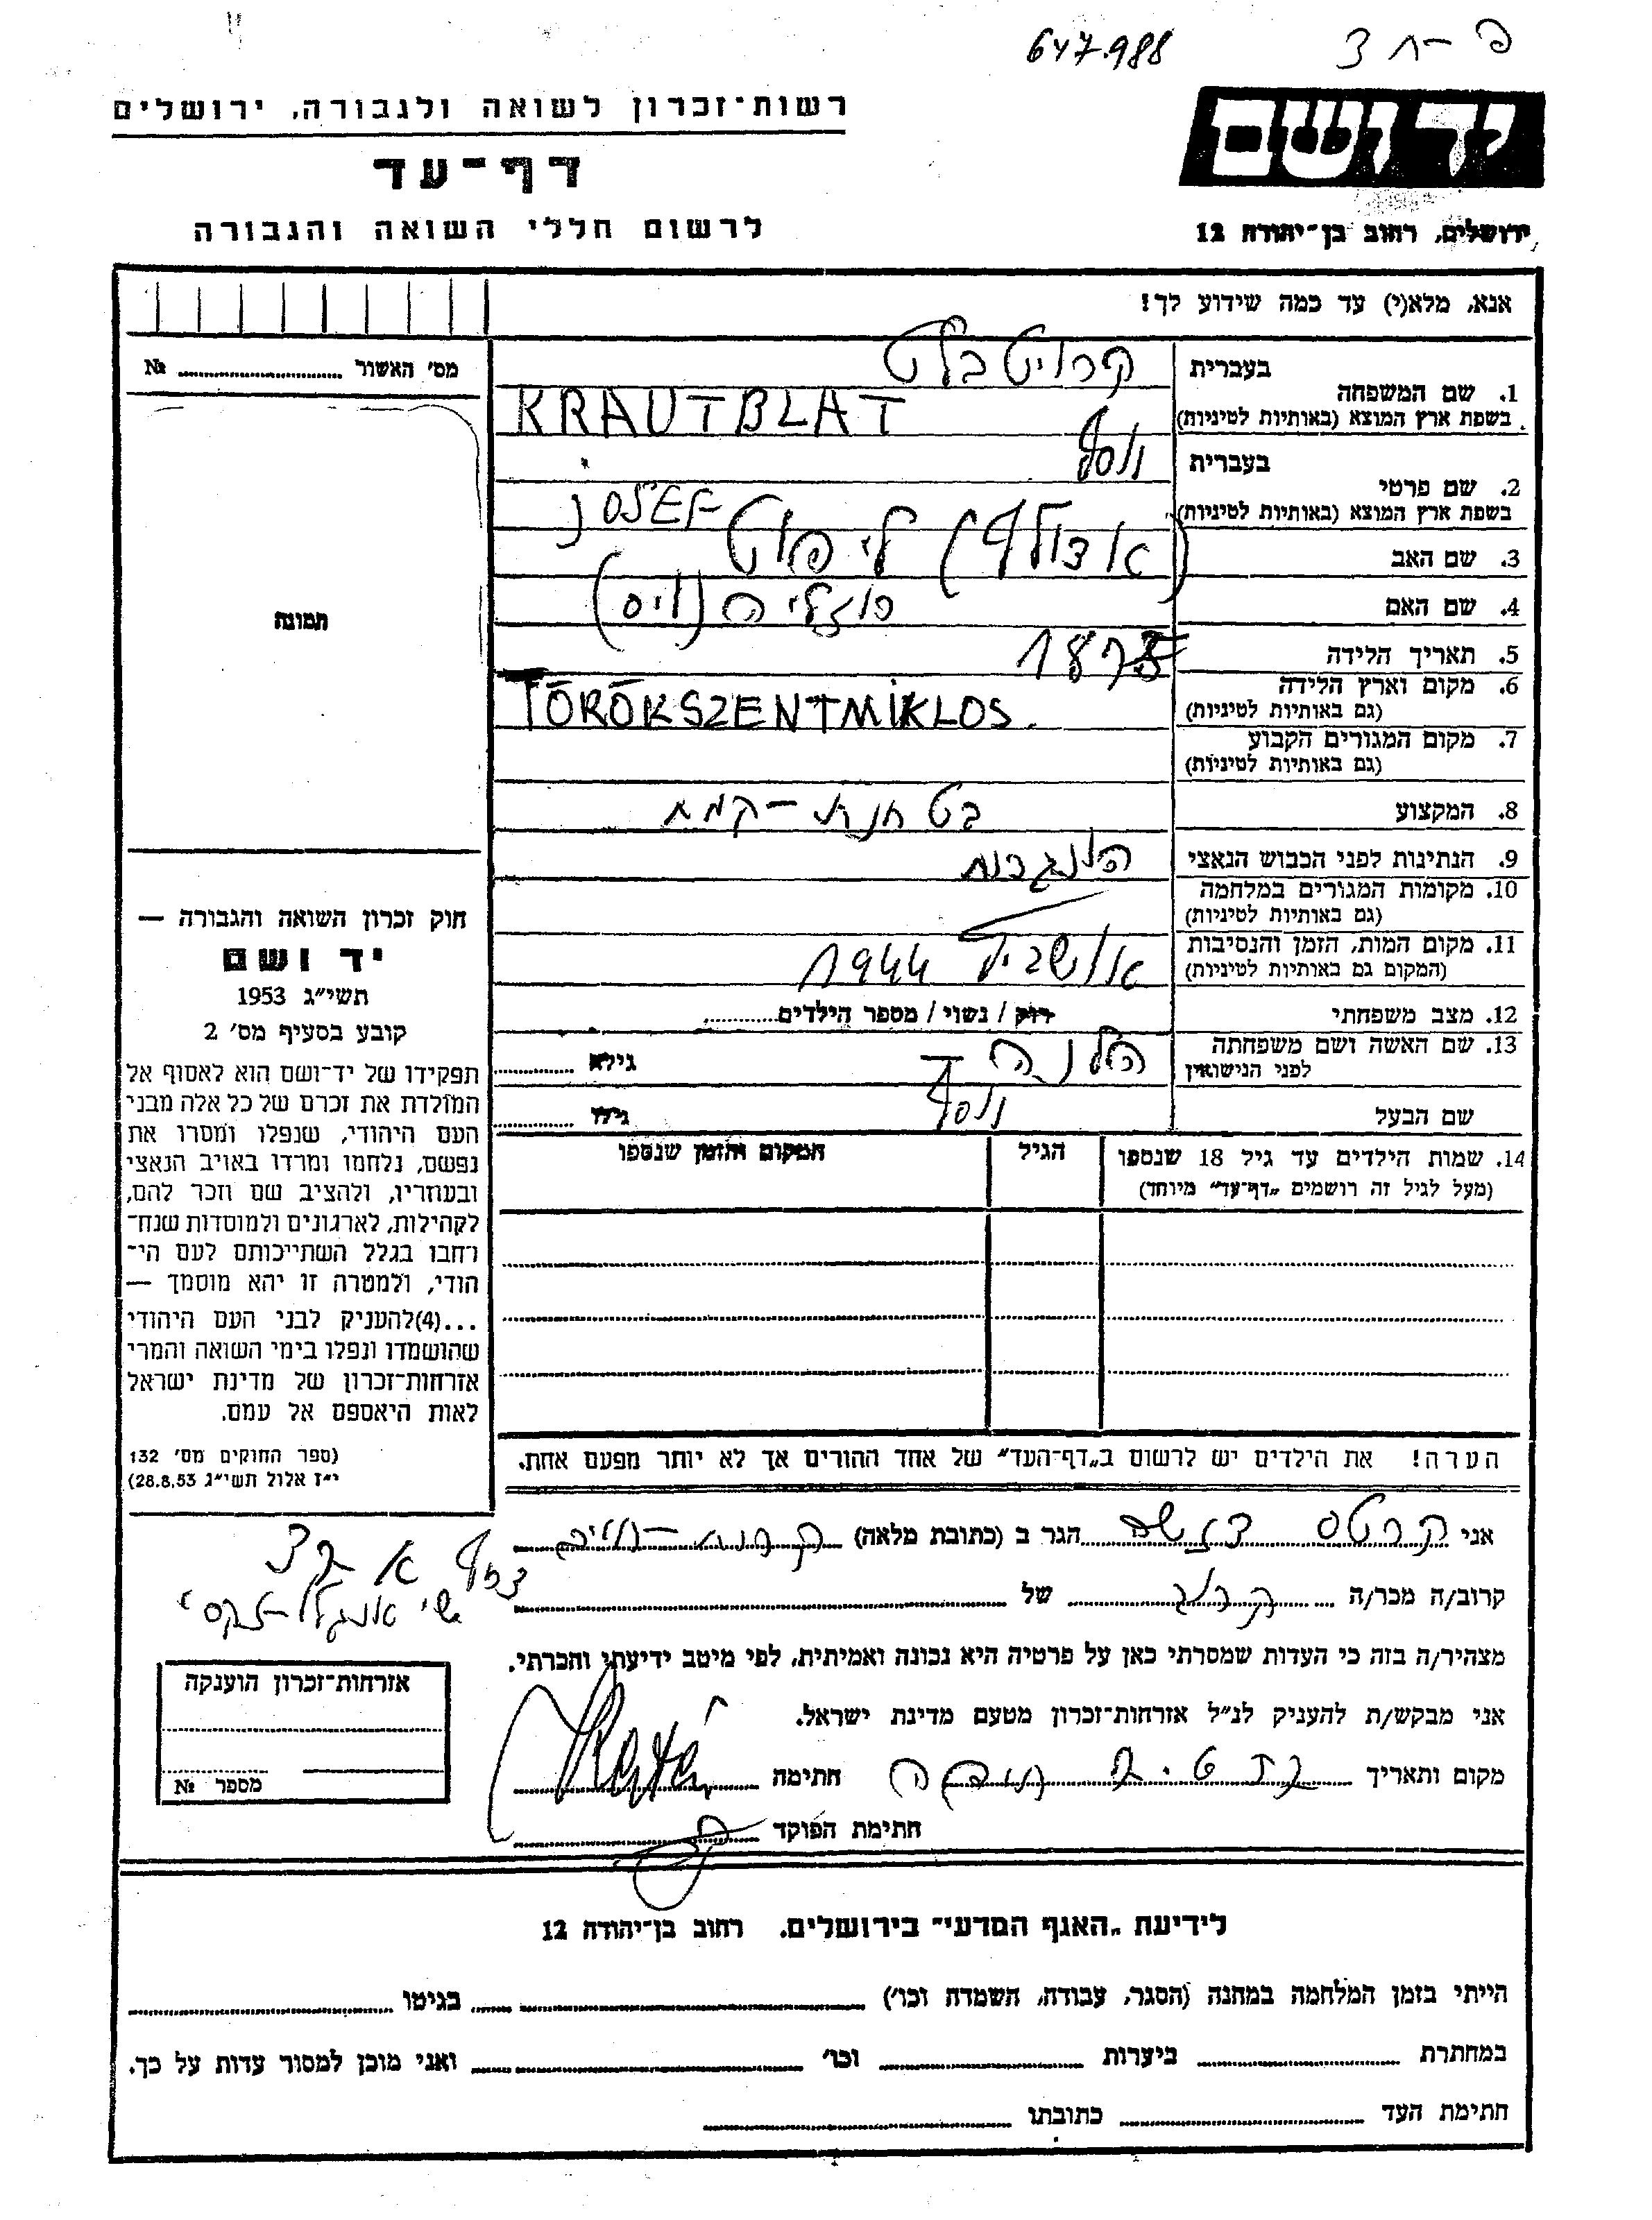 647.988
רשות־זכרון לשואה ולגבורה, ירושלים
יד ושם
דף־עד
לרשום חללי השואה והגבורה
ירושלים, רחוב בן־יהודה 12
אנא, מלא(י) עד כמה שידוע לך!
מס' האשור № 
1. שם המשפחה
בעברית
קרויטבלט
בשפת ארץ המוצא (באותיות לטיניות)
KRAUTBLAT
2. שם פרטי
בעברית
יוסף
בשפת ארץ המוצא (באותיות לטיניות)
JOSEF
3. שם האב
(אדולף) ליפוט
4. שם האם
רוזליה (ויס)
5. תאריך הלידה
6. מקום וארץ הלידה
(גם באותיות לטיניות)
TÖRÖKSZENTMIKLOS.
7. מקום המגורים הקבוע
(גם באותיות לטיניות)
8. המקצוע
בט חנות-קמח
9. הנתינות לפני הכבוש הנאצי
הונגרית
10. מקומות המגורים במלחמה
(גם באותיות לטיניות)
11. מקום המות, הזמן והנסיבות
(המקום גם באותיות לטיניות)
אושביץ 1944
12. מצב משפחתי
רוק / נשוי / מספר הילדים
13. שם האשה ושם משפחתה
לפני הנישואין
הלנה -
גילא
שם הבעל
יוסף
גילו
14. שמות הילדים עד גיל 18 שנספו
(מעל לגיל זה רושמים „דף־עד" מיוחד)
הגיל
המקום והזמן שנספו
הערה! את הילדים יש לרשום ב„דף־העד" של אחד ההורים אך לא יותר מפעם אחת.
תמונה
חוק זכרון השואה והגבורה —
יד ושם
תשי"ג 1953
קובע בסעיף מס' 2
תפקידו של יד־ושם הוא לאסוף אל
המולדת את זכרם של כל אלה מבני
העם היהודי, שנפלו ומסרו את
נפשם, נלחמו ומרדו באויב הנאצי
ובעוזריו, ולהציב שם וזכר להם,
לקהילות, לארגונים ולמוסדות שנח־
רחבו בגלל השתייכותם לעם הי־
הודי, ולמטרה זו יהא מוסמך —
...(4)להעניק לבני העם היהודי
שהושמדו ונפלו בימי השואה והמרי
אזרחות־זכרון של מדינת ישראל
לאות היאספם אל עמם.
(ספר החוקים מס' 132
י"ז אלול תשי"ג 28.8.53)
אני קרטס הגר ב (כתובת מלאה)
קרוב/ה מכר/ה קרוב של
מצהיר/ה בזה כי העדות שמסרתי כאן על פרטיה היא נכונה ואמיתית, לפי מיטב ידיעתי והכרתי.
אני מבקש/ת להעניק לנ"ל אזרחות־זכרון מטעם מדינת ישראל.
מקום ותאריך חתימה
חתימת הפוקד
אזרחות־זכרון הוענקה
מספר №
לידיעת „האגף המדעי" בירושלים, רחוב בן־יהודה 12
הייתי בזמן המלחמה במחנה (הסגר, עבודה, השמדה וכו') בגיטו
במחתרת ביערות וכו' ואני מוכן למסור עדות על כך.
חתימת העד כתובתו